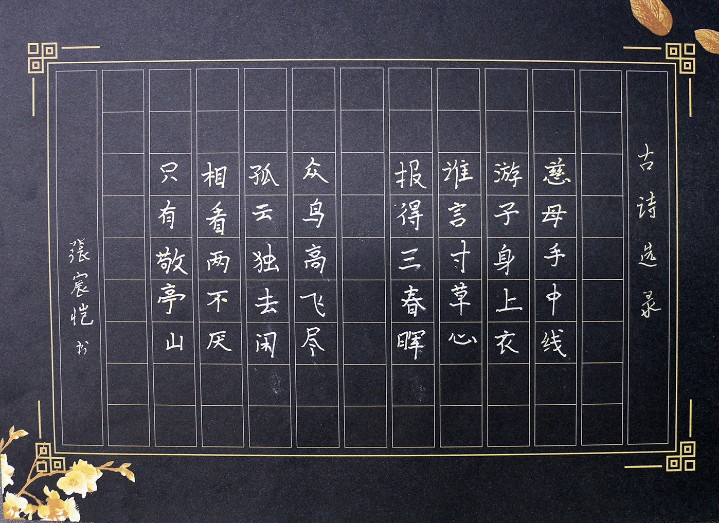 古诗选录
慈母手中线
游子身上衣
谁言寸草心
报得三春晖
众鸟高飞尽
孤云独去闲
相看两不厌
只有敬亭山
張宸恺书